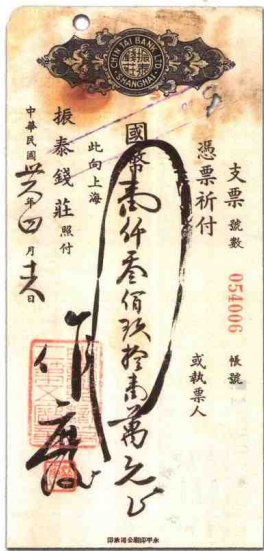 CHIN TAI BANK LTD.
SHANGHAI
支票 號數 054006 帳號
憑票祈付 或執票人
國幣壹仟叁佰玖拾壹萬元正
此向上海
振泰錢莊 照付
中華民國卅六年四月十六日
永平印刷公司承印